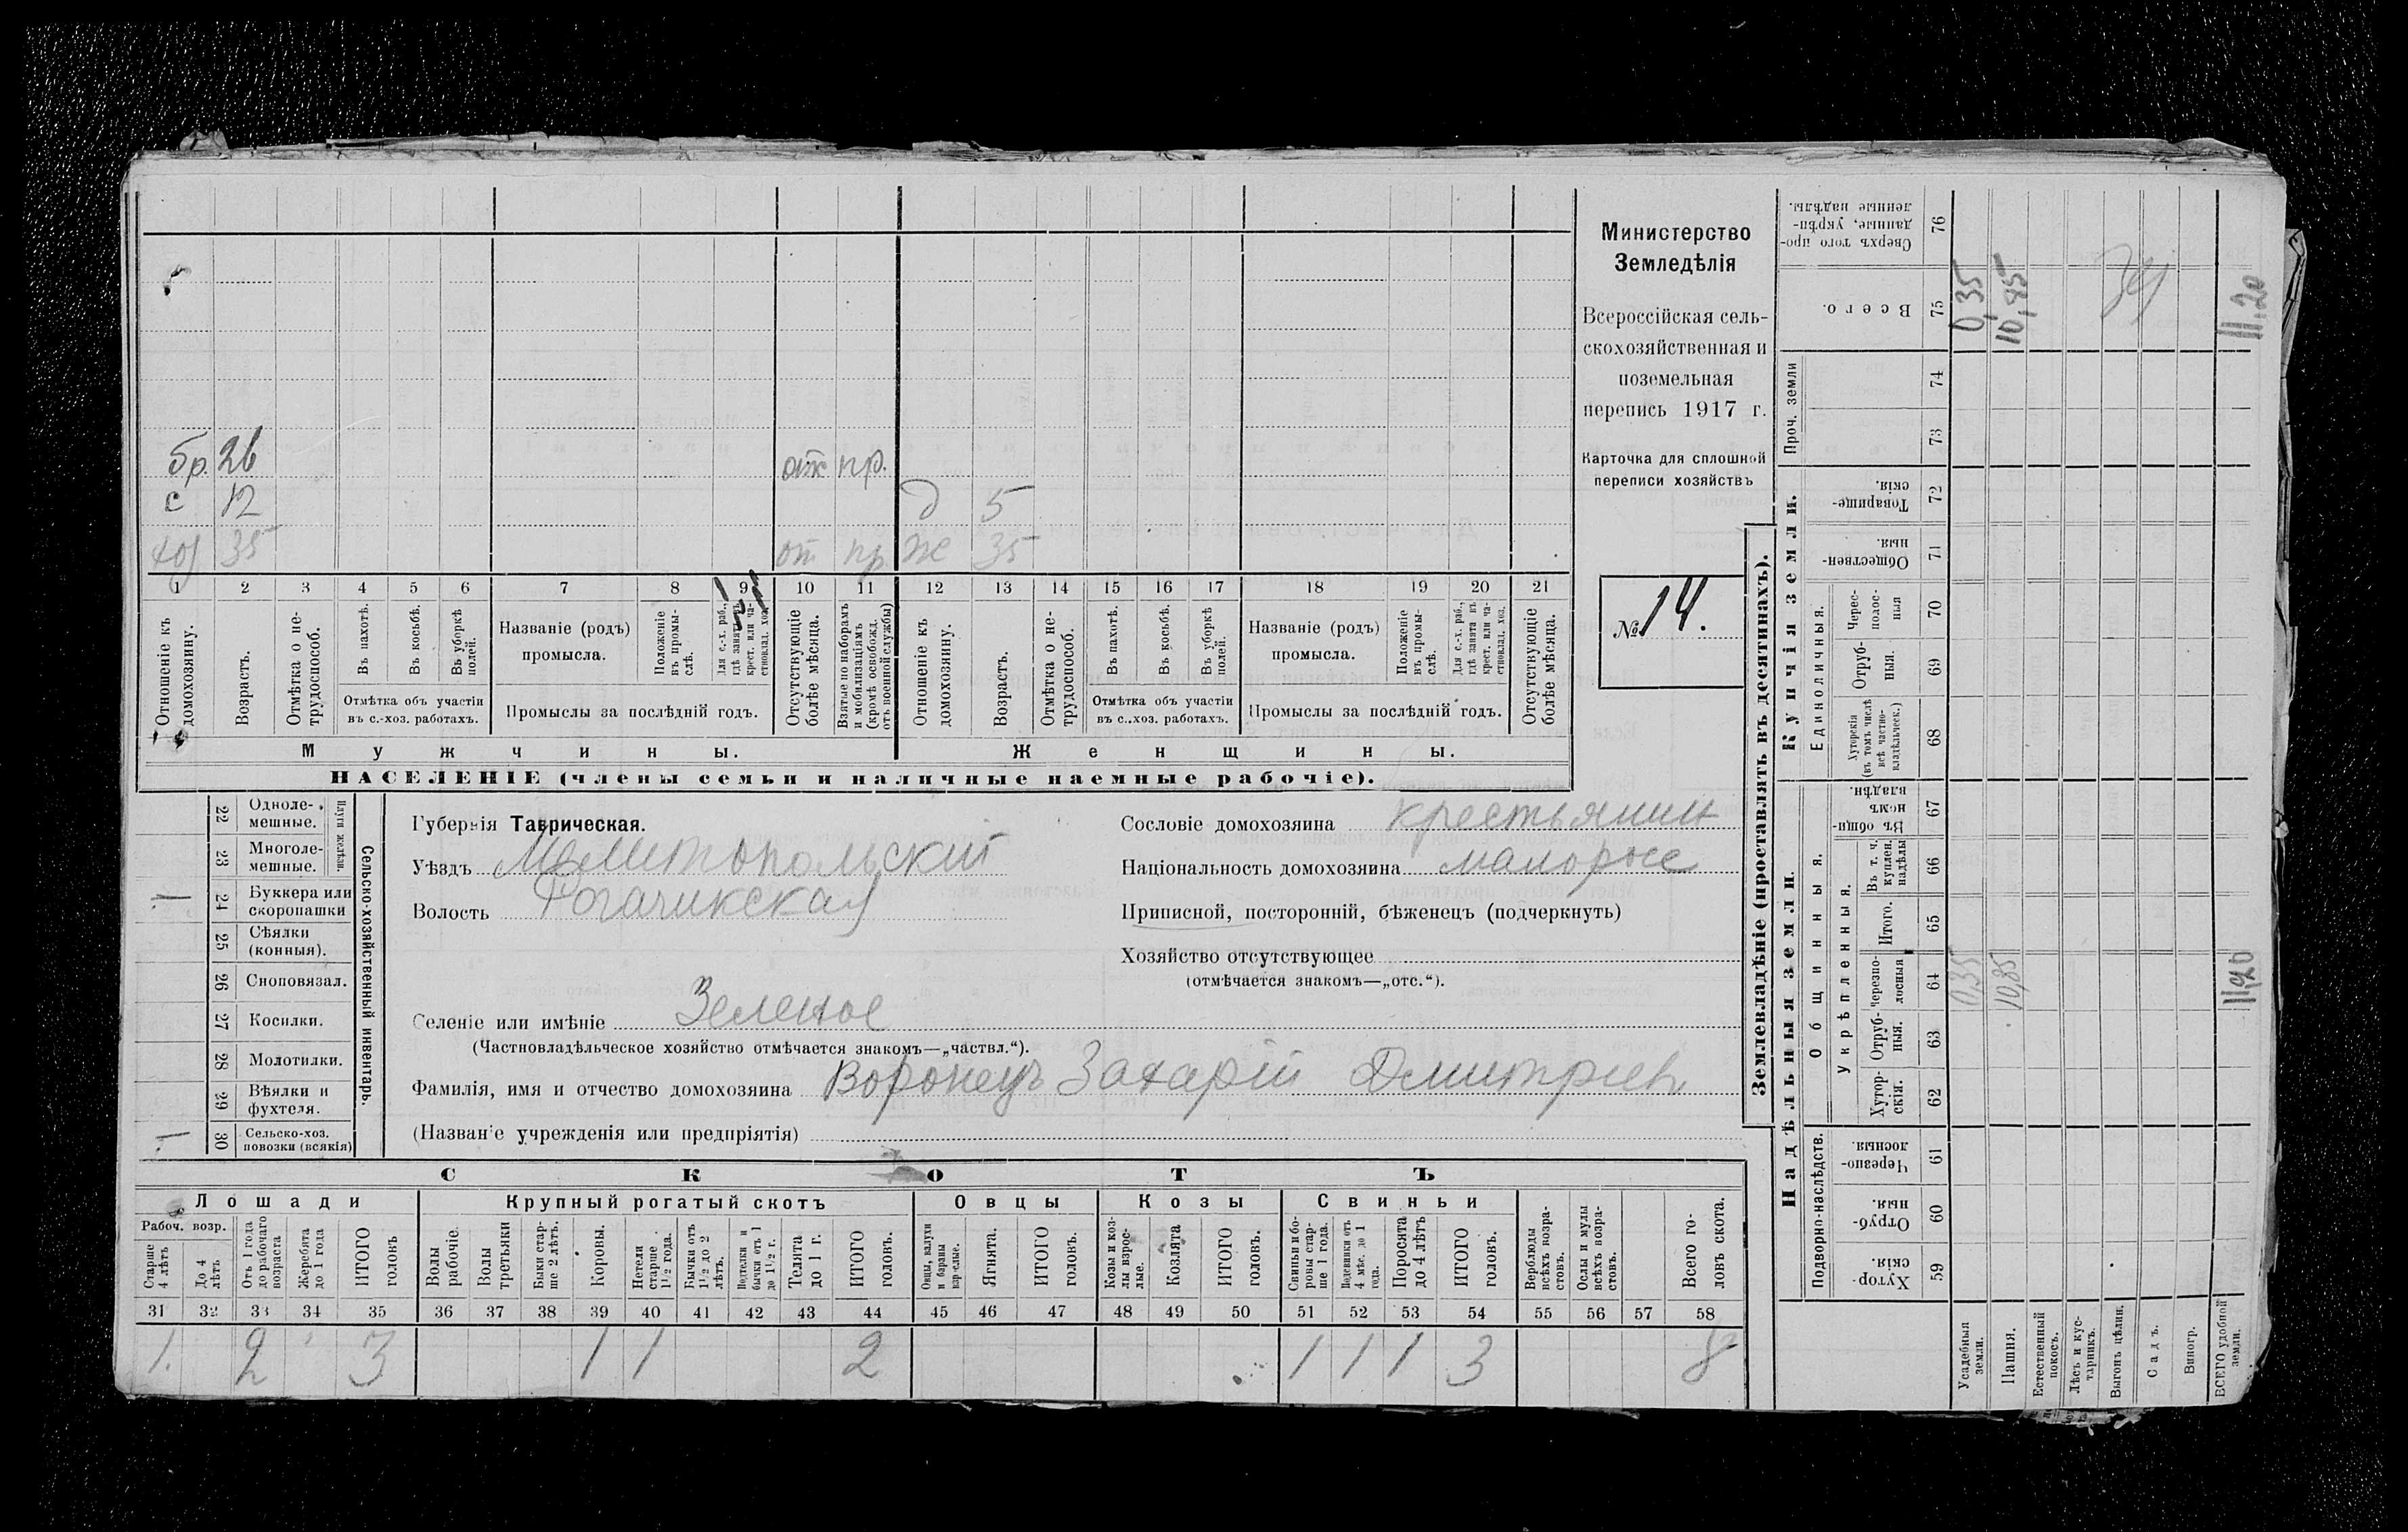 Министерство
Земледѣлія
Всероссійская сель-
скохозяйственная и
поземельная
перепись 1917 г.
Карточка для сплошной
переписи хозяйствъ
№ 14.
бр. 26 отк пр.
с 12 д 5
хоз 35 от пр ж 35
1 2 3 4 5 6 7 8 9 10 11 12 13 14 15 16 17 18 19 20 21
Отношеніе къ домохозяину.
Возрастъ.
Отмѣтка о не-трудоспособ.
Въ пахотѣ.
Въ косьбѣ.
Въ уборкѣ полей.
Отмѣтка объ участіи
въ с.-хоз. работахъ.
Названіе (родъ)
промысла.
Положеніе въ промы-слѣ.
Для с.-х. раб., гдѣ занятъ въ крест. или ча-стновлад. хоз.
Промыслы за послѣдній годъ.
Отсутствующіе болѣе мѣсяца.
Взятые по наборамъ и мобилизаціямъ (кромѣ освобожд. отъ военной службы)
Отношеніе къ домохозяину.
Возрастъ.
Отмѣтка о не-трудоспособ.
Въ пахотѣ.
Въ косьбѣ.
Въ уборкѣ полей.
Отмѣтка объ участіи
въ с.-хоз. работахъ.
Названіе (родъ)
промысла.
Положеніе въ промы-слѣ.
Для с.-х. раб., гдѣ занята въ крест. или ча-стновлад. хоз.
Промыслы за послѣдній годъ.
Отсутствующіе болѣе мѣсяца.
Мужчины. Женщины.
НАСЕЛЕНІЕ (члены семьи и наличные наемные рабочіе).
Сельско-хозяйственный инвентарь.
Плуги желѣзн.
22 Одноле-мешные.
23 Многоле-мешные.
24 Буккера или скоропашки 1
25 Сѣялки (конныя).
26 Сноповязал.
27 Косилки.
28 Молотилки.
29 Вѣялки и фухтеля.
30 Сельско-хоз. повозки (всякія) 1
Губернія Таврическая.
Уѣздъ Мелитопольскій
Волость Рогачикская
Селеніе или имѣніе Зеленое
(Частновладѣльческое хозяйство отмѣчается знакомъ—„частвл.“).
Фамилія, имя и отчество домохозяина Воронецъ Захарій Дмитріев
(Названіе учрежденія или предпріятія)
Сословіе домохозяина крестьянин
Національность домохозяина малорос
Приписной, посторонній, бѣженецъ (подчеркнуть)
Хозяйство отсутствующее
(отмѣчается знакомъ—„отс.“).
СКОТЪ
Лошади Крупный рогатый скотъ Овцы Козы Свиньи
Рабоч. возр.
Старше 4 лѣтъ
До 4 лѣтъ
Отъ 1 года до рабочаго возраста
Жеребята до 1 года
ИТОГО головъ
Волы рабочіе.
Волы третьяки
Быки стар-ше 2 лѣтъ.
Коровы.
Нетели старше 1½ года.
Бычки отъ 1½ до 2 лѣтъ.
бычки отъ 1 до 1½ г.
Телята до 1 г.
ИТОГО головъ.
Овцы, валухи и бараны взрослые.
Ягнята.
ИТОГО головъ.
Козы и коз-лы взрос-лые.
Козлята
ИТОГО головъ.
Свиньи и бо-ровы стар-ше 1 года.
Подсвинки отъ 4 мѣс. до 1 года.
Поросята до 4 лѣтъ
ИТОГО головъ.
Верблюды всѣхъ возра-стовъ.
Ослы и мулы всѣхъ возра-стовъ.
Всего го-ловъ скота.
31 32 33 34 35 36 37 38 39 40 41 42 43 44 45 46 47 48 49 50 51 52 53 54 55 56 57 58
1. 2 3 1 1 2 1 1 1 3 8
Землевладѣніе (проставлять въ десятинахъ).
Надѣльныя земли.
Купчія земли.
Подворно-наслѣдств.
Общинныя.
Укрѣпленныя.
Единоличныя.
Проч. земли
59 Хутор-скія.
60 Отруб-ныя.
61 Черезпо-лосныя.
62 Хутор-скія.
63 Отруб-ныя.
64 Черезпо-лосныя
65 Итого.
66 Въ т. ч. куплен. надѣлы
67 Въ общин-номъ владѣн.
68 Хуторскія (въ томъ числѣ всѣ частно-владѣльческ.)
69 Отруб-ныя.
70 Черес-полос-ныя
71 Обществен-ныя.
72 Товарище-скія.
73
74
75 Всего.
76 Сверхъ того про-данные, укрѣп-ленные надѣлы.
Усадебныя земли. 0,35 0,35
Пашня. 10,85 10,85
Естественный покосъ.
Лѣсъ и кус-тарникъ.
Выгонъ цѣлин.
Садъ.
Виногр.
ВСЕГО удобной земли. 11,20 11,20